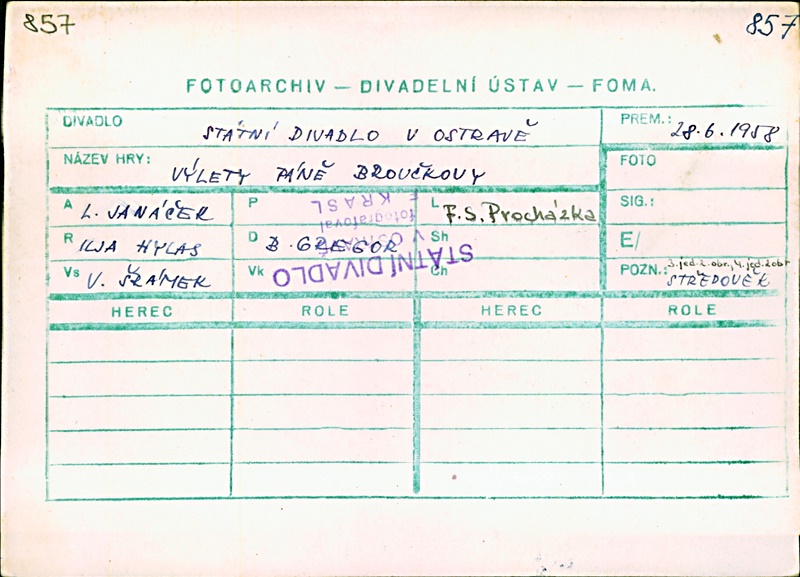 857
857
FOTOARCHIV — DIVADELNÍ ÚSTAV — FOMA.
DIVADLO STÁTNÍ DIVADLO V OSTRAVĚ
PREM.: 28.6.1958
NÁZEV HRY: VÝLETY PÁNĚ BROUČKOVY
FOTO
A L. JANÁČEK
P
L F. S. Procházka
SIG.:
R ILJA HYLAS
D B. GREGOR
Sh
E/
Vs V. ŠRÁMEK
Vk
Ch
POZN.: 3.jed.2.obr., 4.jed.2obr
STŘEDOVĚK
STÁTNÍ DIVADLO
V OSTRAVĚ
fotografoval
F KRASL
HEREC ROLE HEREC ROLE